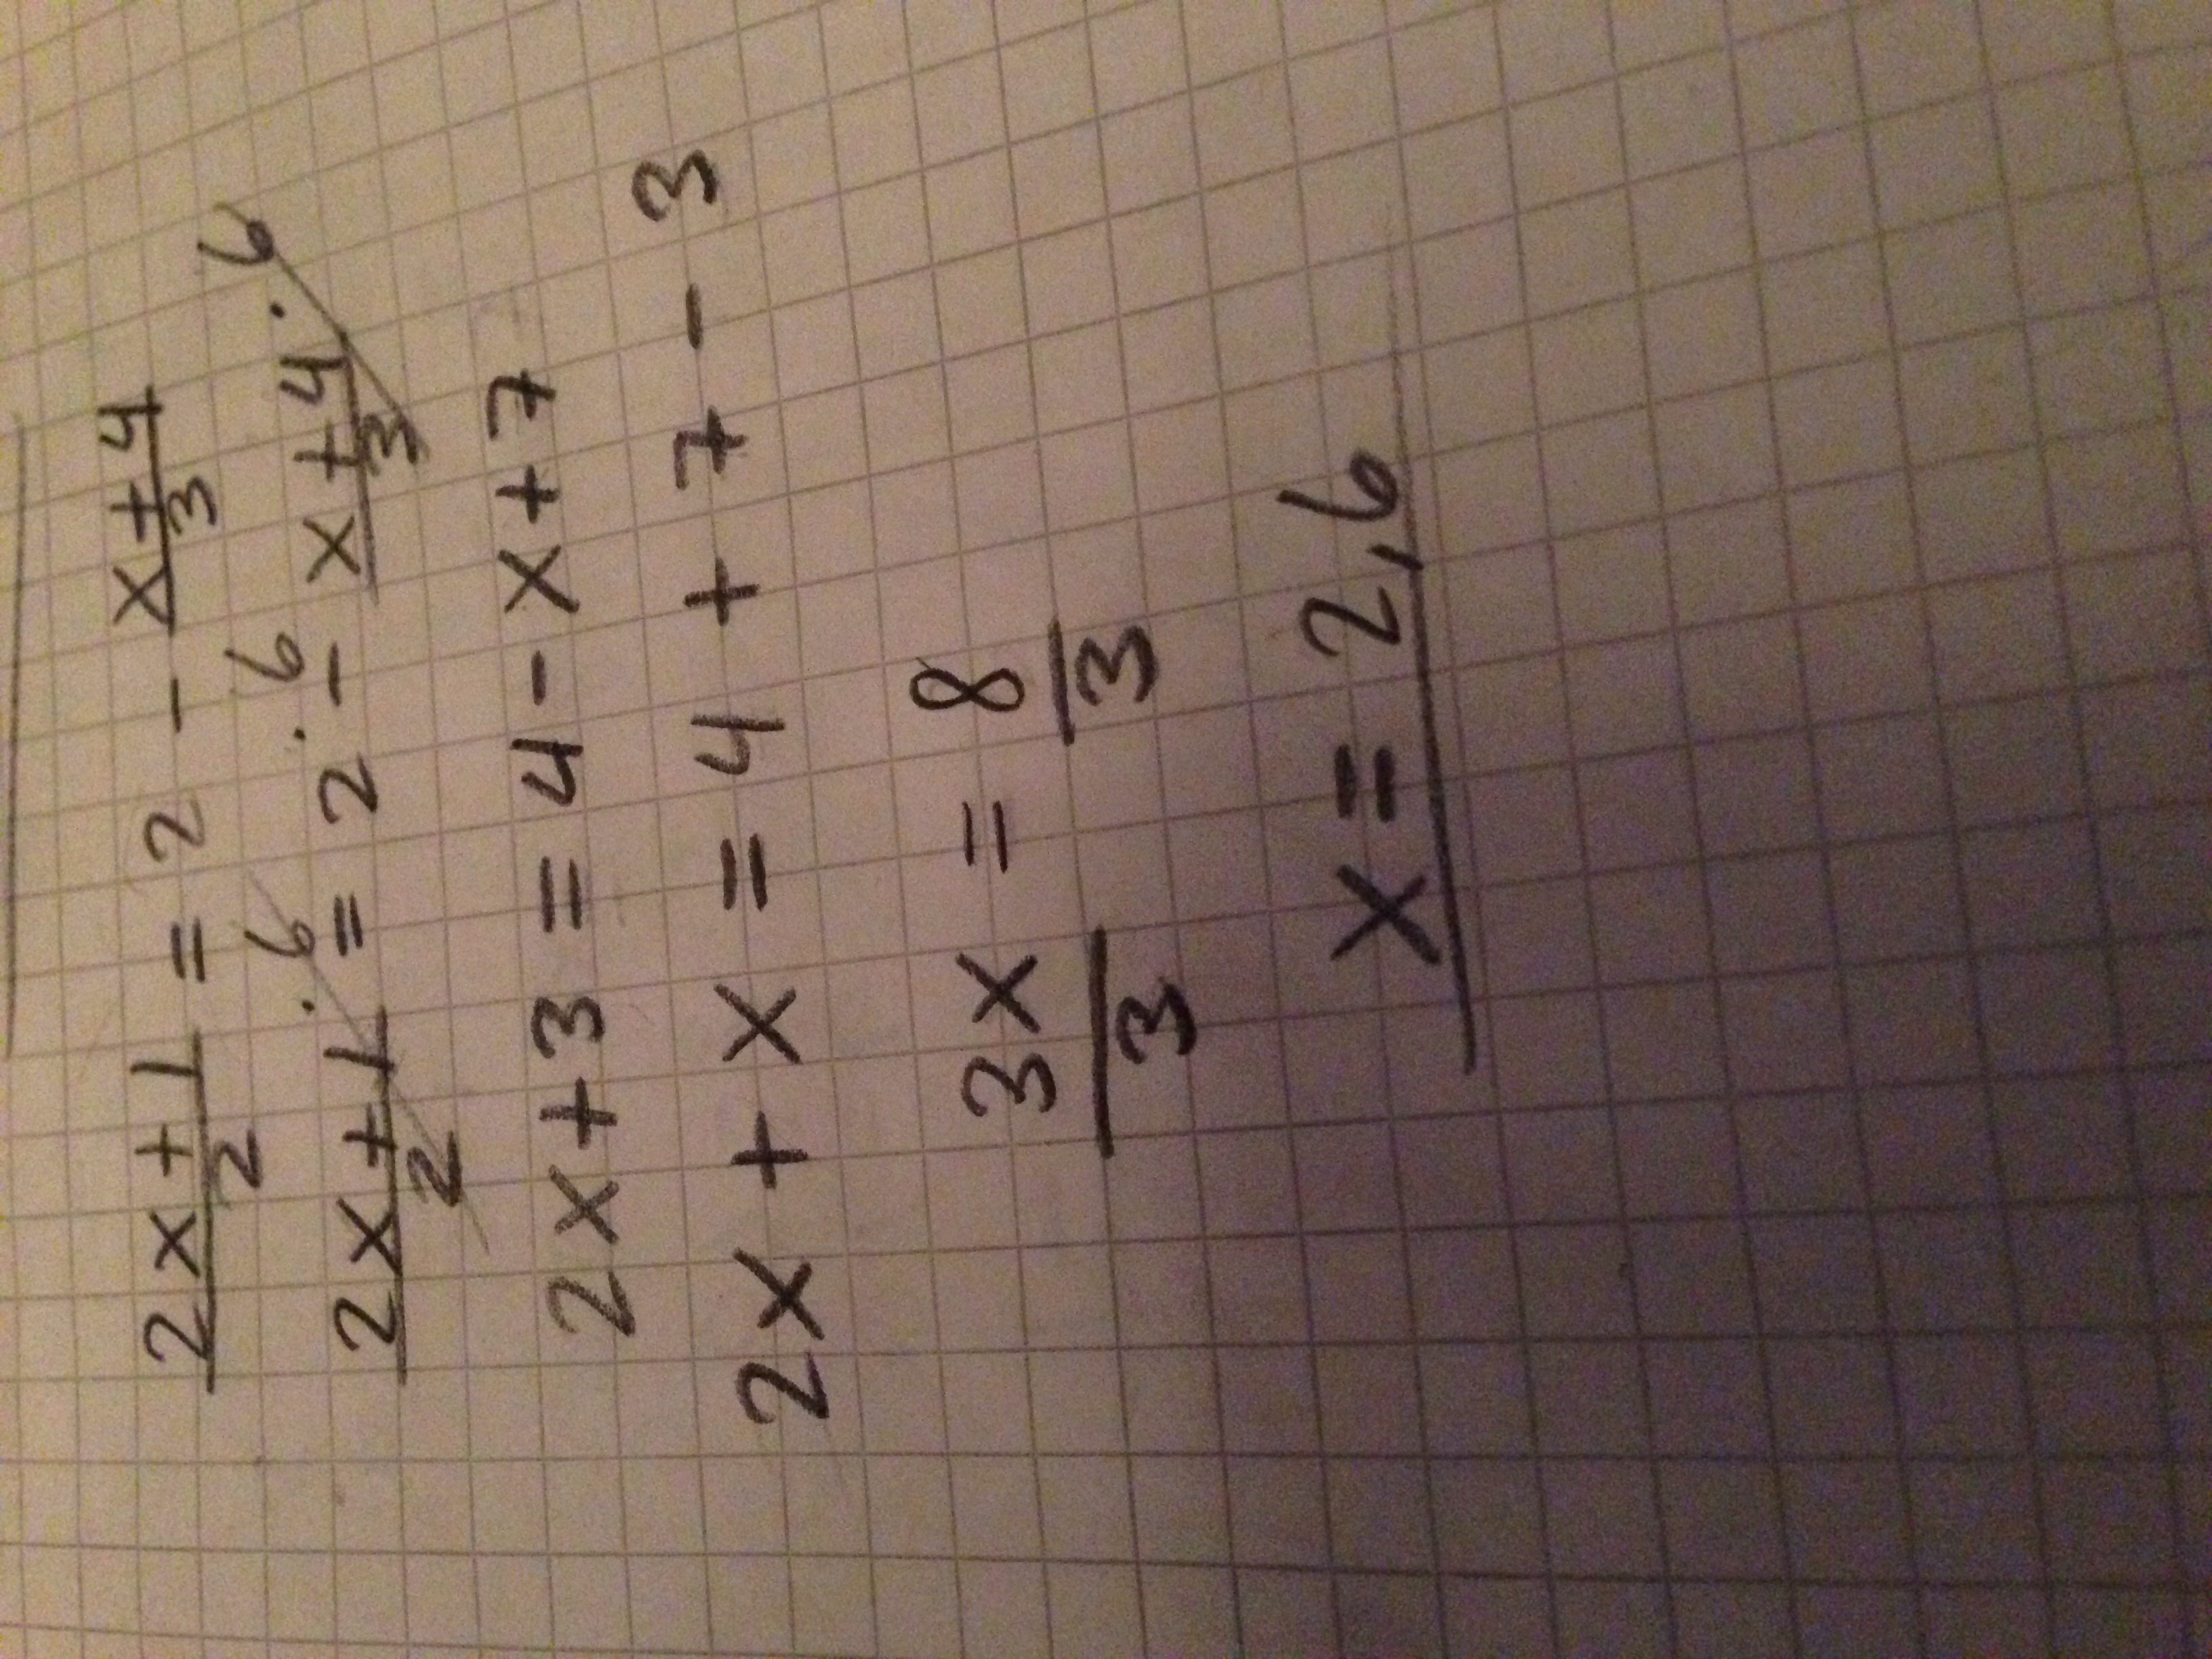 2x+1/2 = 2 - x+4/3
2x+1/2 · 6 = 2 · 6 - x+4/3 · 6
2x+3 = 4-x+7
2x + x = 4 + 7 - 3
3x/3 = 8/3
x = 2,6